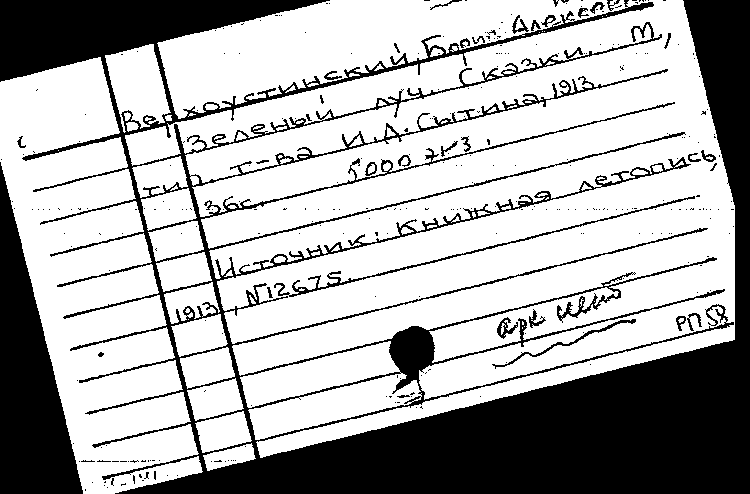 Верхоустинский, Борис Алексеев
Зеленый луч. Сказки. М,
тип. т-ва И.Д.Сытина, 1913.
36с. 5000 экз.
Источник: Книжная летопись,
1913, №12675.
РП 58